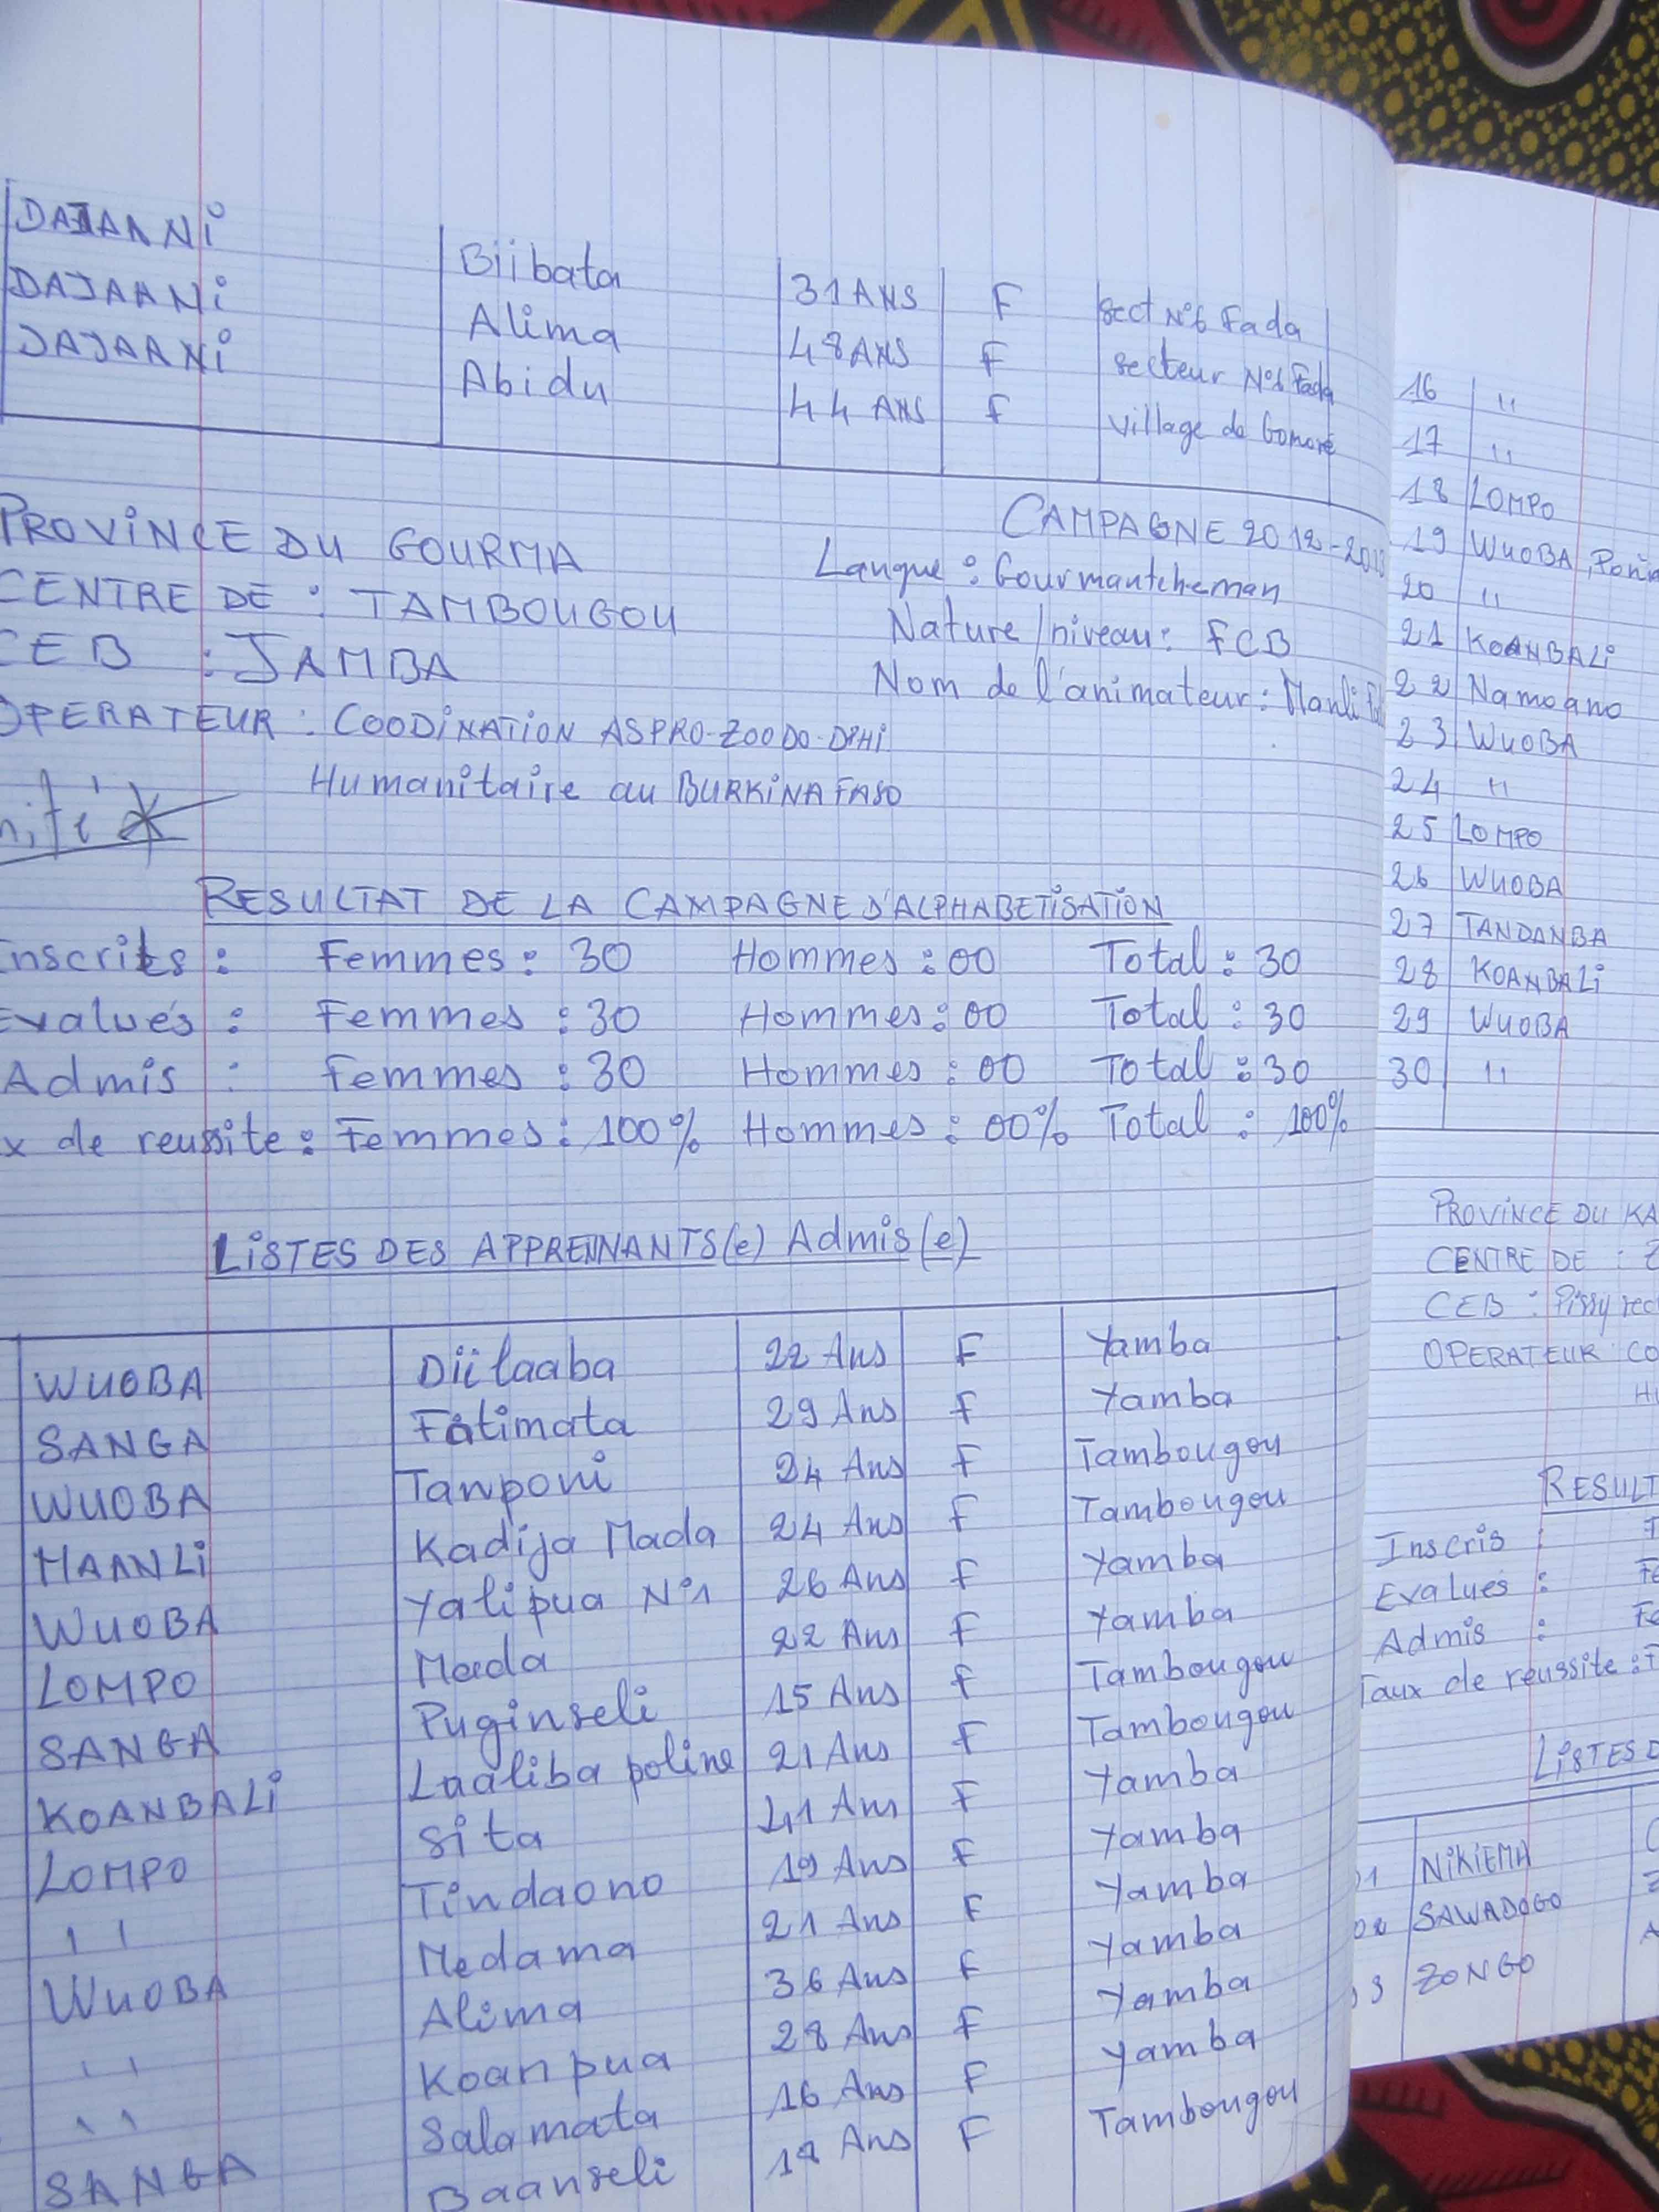 DAJAANNi Biibata 31 ANS F Sect N°6 Fada
DAJAANNi Alima 48 ANS F secteur N°6 Fada
DAJAANNi Abidu 44 ANS F village de
PROViNCE DU GOURMA CAMPAGNE 2012-
CENTRE DE : TAMBOUGOU Langue : Gourmantcheman
CEB : JAMBA Nature/niveau : FCB
OPERATEUR : COODiNATiON ASPRO-ZOODO-DPHi Nom de l'animateur : Manli
Humanitaire au BURKiNA FASO
RESULTAT DE LA CAMPAGNE D'ALPHABETiSATiON
Inscrits : Femmes : 30 Hommes : 00 Total : 30
Evalués : Femmes : 30 Hommes : 00 Total : 30
Admis : Femmes : 30 Hommes : 00 Total : 30
x de reussite : Femmes : 100% Hommes : 00% Total : 100%
LiSTES DES APPRENNANTS(e) Admis(e)
WUOBA Diilaaba 22 Ans F Yamba
SANGA Fatimata 29 Ans F Yamba
WUOBA Tanponi 24 Ans F Tambougou
MAANLi Kadija Mada 24 Ans F Tambougou
WUOBA Yalipua N°1 26 Ans F Yamba
LOMPO Mada 22 Ans F Yamba
SANGA Puginseli 15 Ans F Tambougou
KOANBALi Laaliba poline 21 Ans F Tambougou
LOMPO Sita 41 Ans F Yamba
" Tindaono 19 Ans F Yamba
WUOBA Medama 21 Ans F Yamba
" Alima 36 Ans F Yamba
" Koanpua 28 Ans F Yamba
SANGA Salamata 16 Ans F Yamba
Baanseli 18 Ans F Tambougou
16 "
17 "
18 LOMPO
19 WUOBA
20 "
21 KOANBALi
22 Namoano
23 WUOBA
24 "
25 LOMPO
26 WUOBA
27 TANDANBA
28 KOANBALi
29 WUOBA
30 "
PROViNCE DU KA
CENTRE DE :
CEB : Pissy
OPERATEUR CO
RESULT
Inscris :
Evalués :
Admis :
Taux de reussite :
LiSTES D
01 NiKiEMA
02 SAWADOGO
03 ZONGO